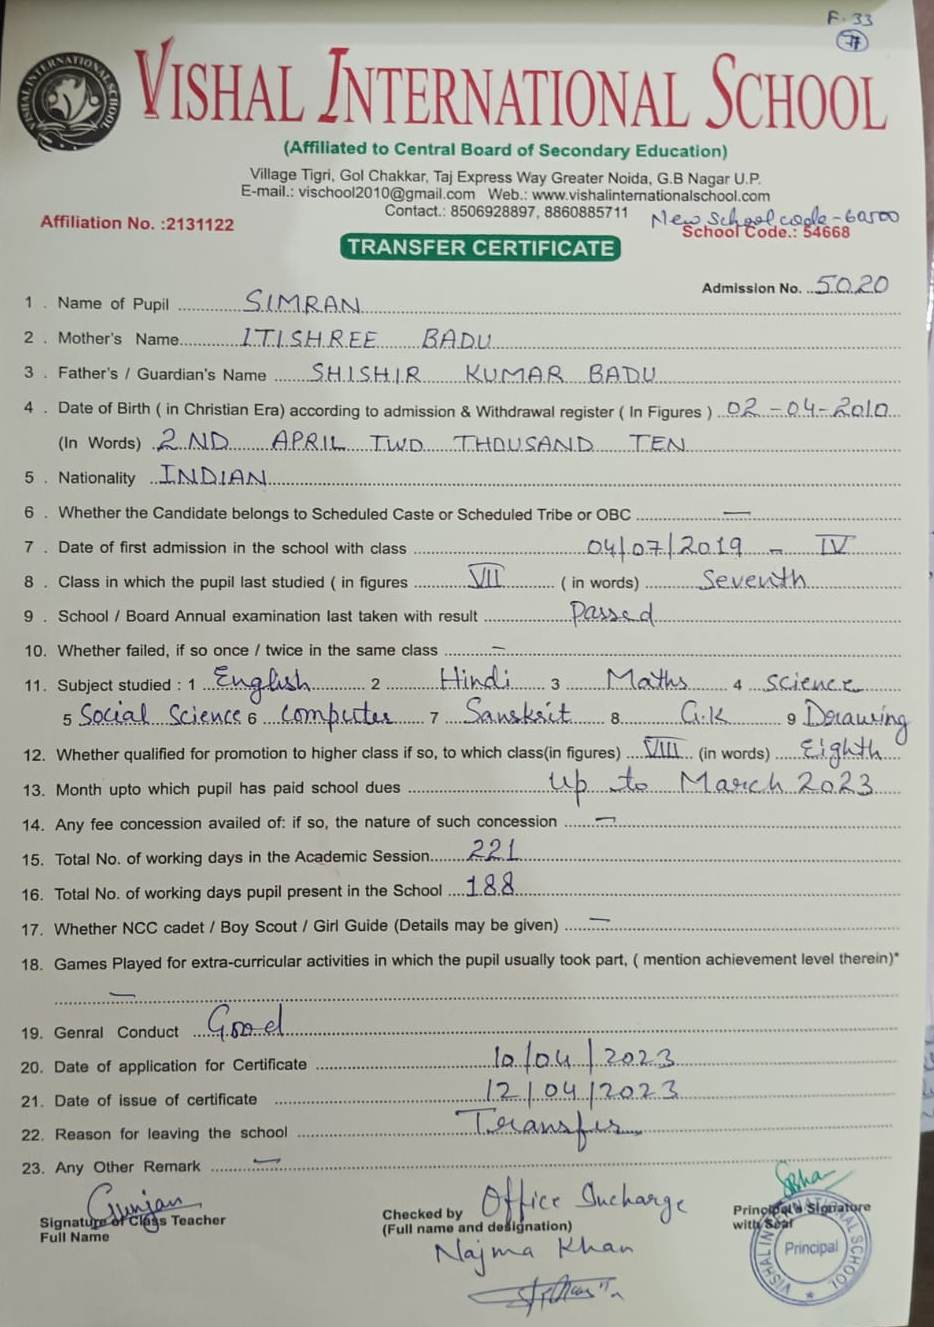 F-33
VISHAL INTERNATIONAL SCHOOL
VISHAL INTERNATIONAL SCHOOL
(Affiliated to Central Board of Secondary Education)
Village Tigri, Gol Chakkar, Taj Express Way Greater Noida, G.B Nagar U.P.
E-mail.: vischool2010@gmail.com Web.: www.vishalinternationalschool.com
Contact.: 8506928897, 8860885711
New School code-60500
Affiliation No. :2131122 School Code.: 54668
TRANSFER CERTIFICATE
Admission No. 5020
1 . Name of Pupil SIMRAN
2 . Mother's Name ITISHREE BADU
3 . Father's / Guardian's Name SHISHIR KUMAR BADU
4 . Date of Birth ( in Christian Era) according to admission & Withdrawal register ( In Figures ) 02-04-2010
(In Words) 2ND APRIL TWO THOUSAND TEN
5 . Nationality INDIAN
6 . Whether the Candidate belongs to Scheduled Caste or Scheduled Tribe or OBC —
7 . Date of first admission in the school with class 04/07/2019 - IV
8 . Class in which the pupil last studied ( in figures VII ( in words) Seventh
9 . School / Board Annual examination last taken with result Passed
10. Whether failed, if so once / twice in the same class —
11. Subject studied : 1 English 2 Hindi 3 Maths 4 science
5 Social Science 6 computer 7 Sanskrit 8 G.K 9 Drawing
12. Whether qualified for promotion to higher class if so, to which class(in figures) VIII (in words) Eighth
13. Month upto which pupil has paid school dues up to March 2023
14. Any fee concession availed of: if so, the nature of such concession —
15. Total No. of working days in the Academic Session 221
16. Total No. of working days pupil present in the School 188
17. Whether NCC cadet / Boy Scout / Girl Guide (Details may be given) —
18. Games Played for extra-curricular activities in which the pupil usually took part, ( mention achievement level therein)*
—
19. Genral Conduct Good
20. Date of application for Certificate 10/04/2023
21. Date of issue of certificate 12/04/2023
22. Reason for leaving the school Transfer
23. Any Other Remark —
Gunjan
Signature of Class Teacher
Full Name
Checked by Office Incharge
(Full name and designation)
Najma Khan
Principal's Signature
with Seal
VISHAL INTERNATIONAL SCHOOL
Principal